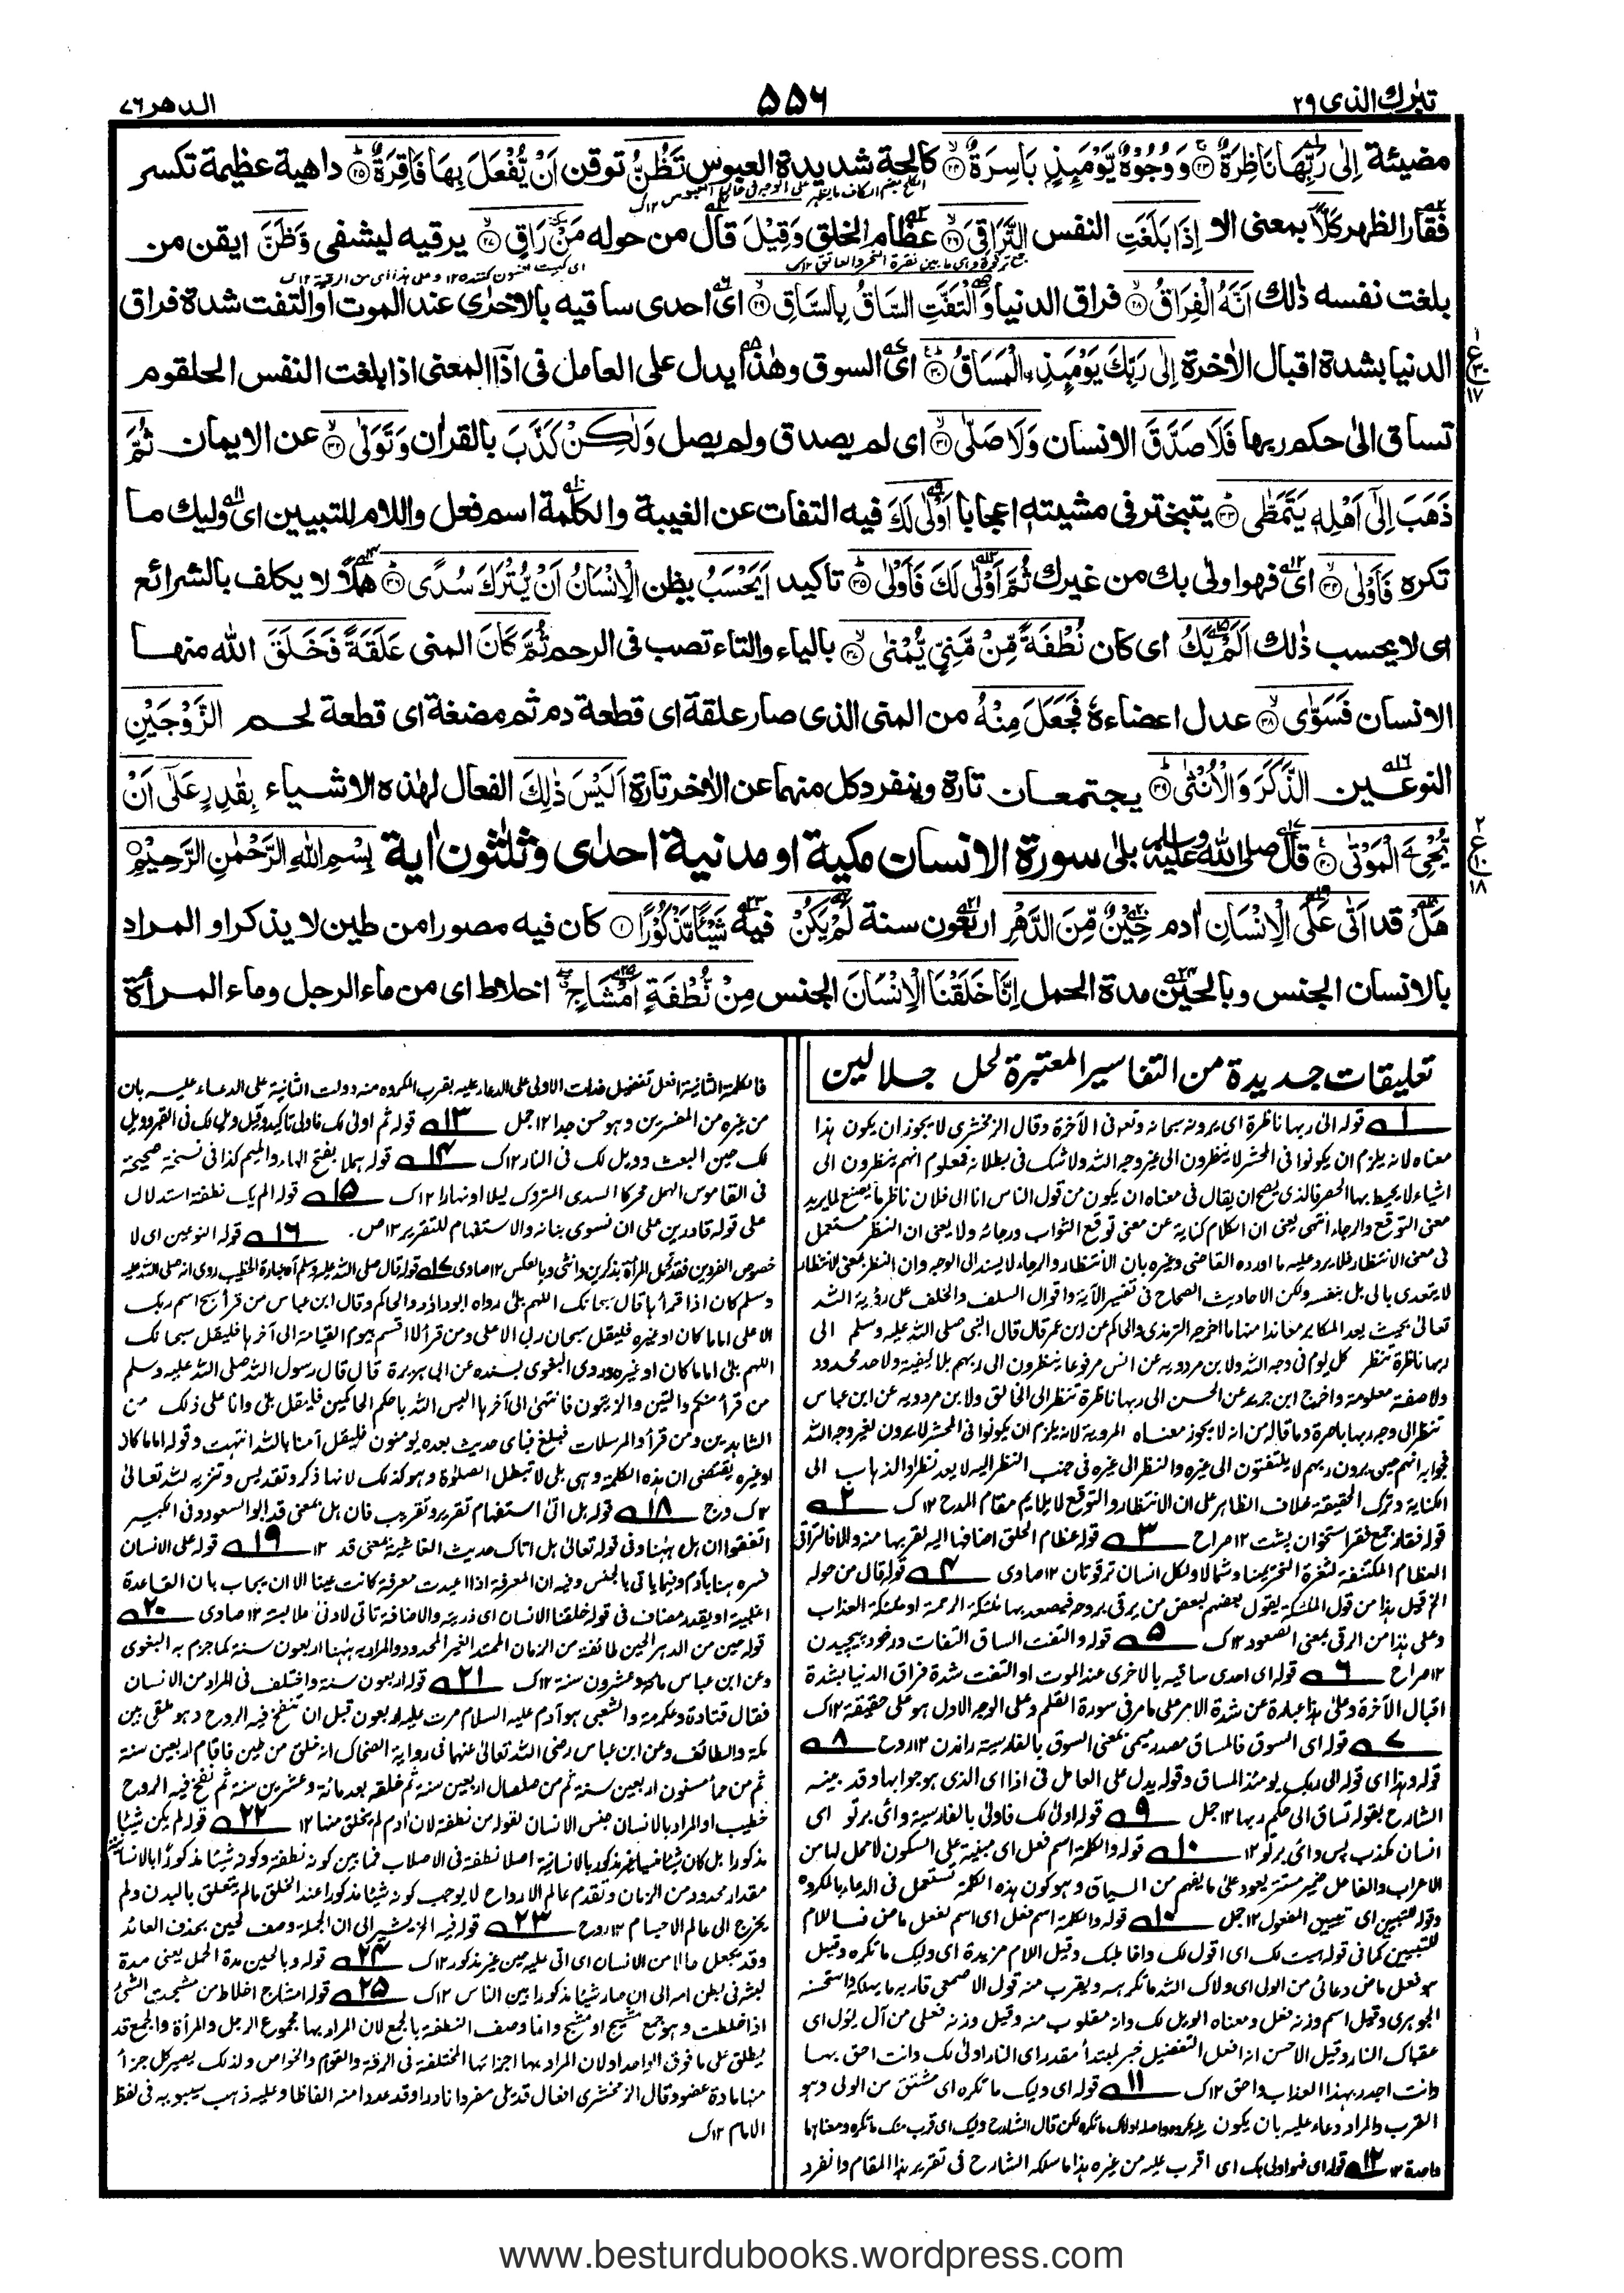 تبٰرك الذی ٢٩
۵۵۶
الدهر ٧٦
مضيئة اِلٰى رَبِّهَا نَاظِرَةٌ ۝٢٣ وَ وُجُوْهٌ يَّوْمَىِٕذٍۭ بَاسِرَةٌ ۝٢٤ كالحة شديدة العبوس تَظُنُّ توقن اَنْ يُّفْعَلَ بِهَا فَاقِرَةٌ ۝٢٥ داهية عظيمة تكسر
فقار الظهر كَلَّاۤ بمعنى الا اِذَا بَلَغَتِ النفس التَّرَاقِيَ ۝٢٦ عظام الحلق وَقِيْلَ قال من حوله مَنْ رَاقٍ ۝٢٧ يرقيه ليشفى وَظَنَّ ايقن من
بلغت نفسه ذٰلك اَنَّهُ الْفِرَاقُ ۝٢٨ فراق الدنيا وَالْتَفَّتِ السَّاقُ بِالسَّاقِ ۝٢٩ اى احدى ساقيه بالاخرٰى عند الموت او التفت شدة فراق
الدنيا بشدة اقبال الاٰخرة اِلٰى رَبِّكَ يَوْمَىِٕذِ ۨالْمَسَاقُ ۝٣٠ اى السوق وهٰذا يدل على العامل فى اذا المعنى اذا بلغت النفس الحلقوم
تساق الىٰ حكم ربها فَلَا صَدَّقَ الانسان وَلَا صَلّٰى ۝٣١ اى لم يصدق ولم يصل وَلٰكِنْ كَذَّبَ بالقراٰن وَتَوَلّٰى ۝٣٢ عن الايمان ثُمَّ
ذَهَبَ اِلٰٓى اَهْلِهٖ يَتَمَطّٰى ۝٣٣ يتبختر فى مشيته اعجابا اَوْلٰى لَكَ فيه التفات عن الغيبة والكلمة اسم فعل واللام للتبيين اى وليك ما
تكره فَاَوْلٰى ۝٣٤ اى فهو اولى بك من غيرك ثُمَّ اَوْلٰى لَكَ فَاَوْلٰى ۝٣٥ تاكيد اَيَحْسَبُ يظن الْاِنْسَانُ اَنْ يُّتْرَكَ سُدًى ۝٣٦ هملا لا يكلف بالشرائع
اى لا يحسب ذٰلك اَلَمْ يَكُ اى كان نُطْفَةً مِّنْ مَّنِيٍّ يُّمْنٰى ۝٣٧ بالياء والتاء تصب فى الرحم ثُمَّ كَانَ المنى عَلَقَةً فَخَلَقَ الله منها
الانسان فَسَوّٰى ۝٣٨ عدل اعضاءهٗ فَجَعَلَ مِنْهُ من المنى الذى صار علقة اى قطعة دم ثم مضغة اى قطعة لحم الزَّوْجَيْنِ
النوعين الذَّكَرَ وَالْاُنْثٰى ۝٣٩ يجتمعان تارة وينفرد كل منهما عن الاٰخر تارة اَلَيْسَ ذٰلِكَ الفعال لهٰذه الاشياء بِقٰدِرٍ عَلٰٓى اَنْ
يُّحْيِۦَ الْمَوْتٰى ۝٤٠ قال صلى الله عليه وسلم بلى سورة الانسان مكية او مدنية احدٰى وثلٰثون اٰية بِسْمِ اللّٰهِ الرَّحْمٰنِ الرَّحِيْمِ
هَلْ قد اَتٰى عَلَى الْاِنْسَانِ اٰدم حِيْنٌ مِّنَ الدَّهْرِ اربعون سنة لَمْ يَكُنْ فيه شَيْـًٔا مَّذْكُوْرًا ۝١ كان فيه مصورا من طين لا يذكر او المراد
بالانسان الجنس وبالحين مدة الحمل اِنَّا خَلَقْنَا الْاِنْسَانَ الجنس مِنْ نُّطْفَةٍ اَمْشَاجٍ اخلاط اى من ماء الرجل وماء المرأة
تعليقات جديدة من التفاسير المعتبرة لحل جلالين
١ قوله الىٰ ربها ناظرة اى يرونه سبحانه وتعالى فى الآخرة وقال الزمخشرى لا يجوز ان يكون هذا
معناه لانه يلزم ان يكونوا فى المحشر لا ينظرون الى غير وجه الله ولا شك فى بطلانه فمعلوم انهم ينظرون الى
اشياء لا يحيط بها الحصر فالذى يصح ان يقال فى معناه ان يكون من قول الناس انا الى فلان ناظر ما يصنع بى يريد
معنى التوقع والرجاء انتهى يعنى ان الكلام كناية عن معنى توقع الثواب ورجائه ولا يعنى ان النظر مستعمل
فى معنى الانتظار فلا يرد عليه ما اورده القاضى وغيره بان الانتظار والرجاء لا يسند الى الوجه وان النظر بمعنى الانتظار
لا يتعدى بالى بل بنفسه ولكن الاحاديث الصحاح فى تفسير الآية واقوال السلف والخلف على رؤية الله
تعالى بحيث يعد المكابر معاندا منها ما اخرجه الترمذى والحاكم عن ابن عمر قال قال النبى صلى الله عليه وسلم الى
ربها ناظرة تنظر كل يوم فى وجه الله ولابن مردويه عن انس مرفوعا ينظرون الى ربهم بلا كيفية ولا حد محدود
ولا صفة معلومة واخرج ابن جرير عن الحسن الى ربها ناظرة تنظر الى الخالق ولابن مردويه عن ابن عباس
تنظر الى وجه ربها
الكناية وترك الحقيقة خلاف الظاهر على ان الانتظار والتوقع لا يلايم مقام المدح ١٢ك ٢
قوله فقار جمع فقر استخوان پشت ١٢ صراح ٣ قوله عظام الحلق اضافها اليه لقربها منه والا فالتراقى
العظام المكتنفة لثغرة النحر يمينا وشمالا ولكل انسان ترقوتان ١٢ صاوى ٤ قوله قال من حوله
وعلى هذا من الرقى بمعنى الصعود ١٢ك ٥ قوله والتفت الساق التفات درخود پيچيدن
١٢ صراح ٦ قوله اى احدى ساقيه بالاخرى عند الموت او التفت شدة فراق الدنيا بشدة
اقبال الآخرة وعلى هذا عبارة عن شدة الامر على ما مر فى سورة القلم وعلى الوجه الاول هو على حقيقة ١٢ك
٧ قوله اى السوق فالمساق مصدر ميمى بمعنى السوق بالفارسية راندن ١٢ روح ٨
قوله وهذا اى قوله الى ربك يومئذ المساق وقوله يدل على العامل فى اذا اى الذى هو جوابها وقد بينه
الشارح بقوله تساق الى حكم ربها ١٢ جمل ٩ قوله اولىٰ لك فاولىٰ بالفارسية وائى برتو اى
انسان مكذب پس وائى برتو ١٢ ١٠ قوله والكلمة اسم فعل اى مبنية على السكون لا محل لها من
الاعراب والفاعل ضمير مستتر يعود على ما يفهم من السياق وهو كون هذه الكلمة تستعمل فى الدعاء بالمكروه
وقوله للتبيين اى تبيين المفعول ١٢ جمل ١٠ قوله والكلمة اسم فعل
١١ قوله اى وليك ما تكره اى مشتق من الولى وهو
القرب والمراد دعاء عليه بان يكون
١٢ قوله اى فهو اولى بك اى اقرب عليه من غيره هذا ما سلكه الشارح فى تقرير هذا المقام وانفرد
فالكلمة الثانية افعل تفضيل فدلت الاولى على الدعاء عليه بقرب المكروه منه ودلت الثانية على الدعاء عليه بان
من غيره من المفسرين وهو حسن جدا ١٢ جمل ١٣ قوله ثم اولى لك فاولى تاكيد وقيل ويل لك فى القبر وويل
لك حين البعث وويل لك فى النار ١٢ك ١٤ قوله هملا بفتح الهاء والميم كذا فى نسخة صحيحة
فى القاموس الهمل محركا السدى المتروك ليلا او نهارا ١٢ك ١٥ قوله الم يك نطفة استدلال
على قوله قادرين على ان نسوى بنانه والاستفهام للتقرير ١٢ص. ١٦ قوله النوعين اى لا
خصوص الفردين فقد تحمل المرأة بذكرين وانثى وبالعكس ١٢ صاوى ١٧ قوله قال صلى الله عليه وسلم
وسلم كان اذا قرأها قال سبحانك اللهم بلى رواه ابوداؤد والحاكم وقال ابن عباس من قرأ سبح اسم ربك
الاعلى اماما كان او غيره فليقل سبحان ربى الاعلى ومن قرأ لا اقسم بيوم القيامة الى آخرها فليقل سبحانك
اللهم بلى اماما كان او غيره وروى البغوى بسنده عن ابى هريرة قال قال رسول الله صلى الله عليه وسلم
من قرأ منكم والتين والزيتون فانتهى الى آخرها اليس الله باحكم الحاكمين فليقل بلى وانا على ذلك من
الشاهدين ومن قرأ والمرسلات فبلغ فبأى حديث بعده يومنون فليقل آمنا بالله انتهت وقوله اماما كان
او غيره يقتضى ان هذه الكلمة وهى بلى لا تبطل الصلوٰة وهو كذلك لانها ذكر وتقديس وتنزيه لله تعالى
١٢ك وج ١٨ قوله هل اتىٰ استفهام تقرير وتقريب فان هل بمعنى قد ابوالسعود وفى الكبير
اتفقوا ان هل ههنا وفى قوله تعالى هل اتاك حديث الغاشية بمعنى قد ١٢ ١٩ قوله على الانسان
فسره هنا بآدم وفيما ياتى بالجنس وفيه ان المعرفة اذا اعيدت معرفة كانت عينا الا ان يجاب بان القاعدة
اغلبية او يقدر مضاف فى قوله خلقنا الانسان اى ذريته والاضافة تاتى لادنى ملابسة ١٢ صاوى ٢٠
قوله حين من الدهر الحين طائفة من الزمان الممتد الغير المحدود والمراد به ههنا اربعون سنة كما جزم به البغوى
وعن ابن عباس مائة وعشرون سنة ١٢ك ٢١ قوله اربعون سنة واختلف فى المراد من الانسان
فقال قتادة وعكرمة والشعبى هو آدم عليه السلام مرت عليه اربعون قبل ان تنفخ فيه الروح وهو ملقى بين
مكة والطائف وعن ابن عباس رضى الله تعالى عنهما فى رواية الضحاك انه خلق من طين فاقام اربعين سنة
ثم من حمأ مسنون اربعين سنة ثم من صلصال اربعين سنة ثم خلقه بعد مائة وعشرين سنة ثم نفخ فيه الروح
خطيب او المراد بالانسان جنس الانسان لقوله من نطفة لان آدم لم يخلق منها ١٢ ٢٢ قوله لم يكن شيئا
مقدار محدود من الزمان وتقدم عالم الارواح لا يوجب كونه شيئا مذكورا عند الخلق مالم يتعلق بالبدن ولم
يخرج الى عالم الاجسام ١٢ روح ٢٣ قوله فيه الخ يشير الى ان الجملة وصف لحين بحذف العائد
وقد يجعل حالا من الانسان اى اتى عليه حين غير مذكور ١٢ك ٢٤ قوله وبالحين مدة الحمل يعنى مدة
لبثه فى بطن امه الى ان صار شيئا مذكورا بين الناس ١٢ك ٢٥ قوله امشاج اخلاط من مشجت الشئ
اذا خلطت وهو جمع مشج او مشيج وانما وصف النطفة بالجمع لان المراد بها مجموع الرجل والمرأة والجمع قد
يطلق على ما فوق الواحد او لان المراد بها اجزائها المختلفة فى الرقة والقوام والخواص ولذلك يصير كل جزأ
منها مادة عضو وقال الزمخشرى افعال قد يلى مفردا نادرا وقد عدد امنه الفاظا وعليه ذهب سيبويه فى لفظ
الانعام ١٢ك
www.besturdubooks.wordpress.com